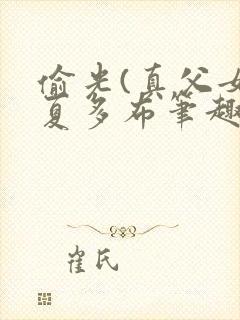 偷光(真父女
夏多布笔趣
崔氏